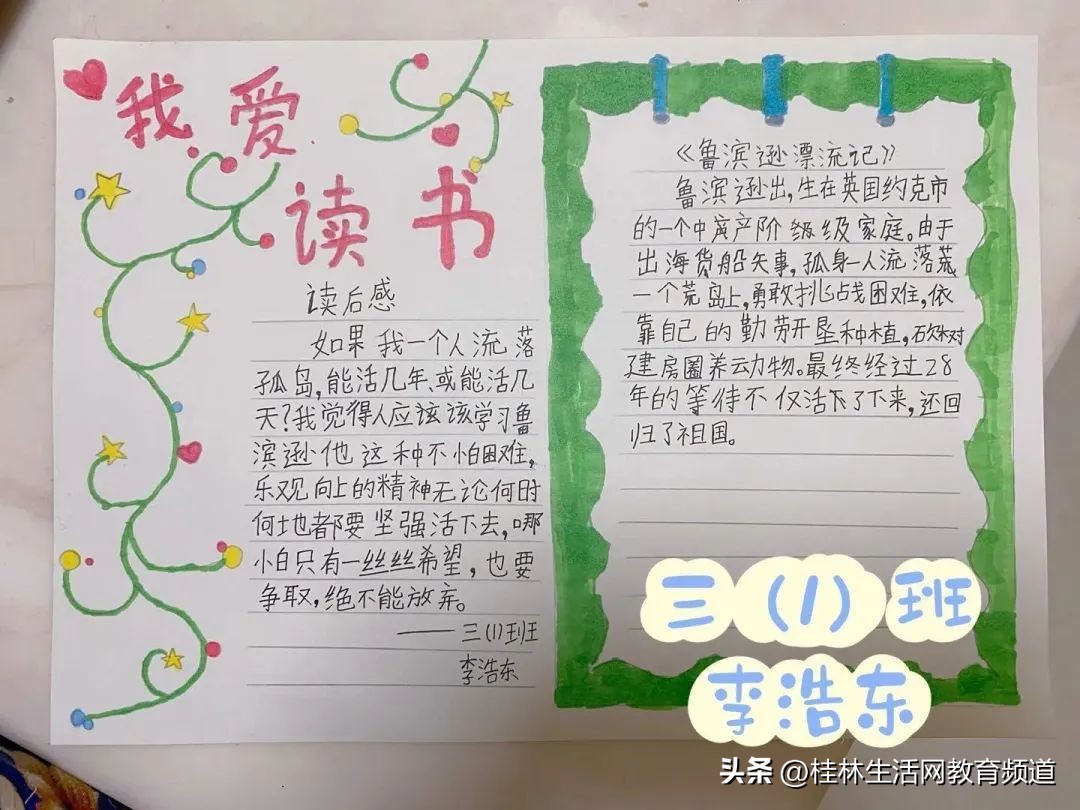 我爱
读书
读后感
如果我一个人流落
孤岛,能活几年、或能活几
天?我觉得人应该该学习鲁
滨逊他这种不怕困难,
乐观向上的精神无论何时
何地都要坚强活下去,哪
小白只有一丝丝希望,也要
争取,绝不能放弃。
——三(1)班
李浩东
《鲁滨逊漂流记》
鲁滨逊出,生在英国约克市
的一个中产阶级家庭。由于
出海货船失事,孤身一人流落荒
一个荒岛上,勇敢挑战困难,依
靠自己的勤劳开垦种植,砍树
建房圈养动物。最终经过28
年的等待不仅活下了下来,还回
归了祖国。
三(1)班
李浩东
头条 @桂林生活网教育频道